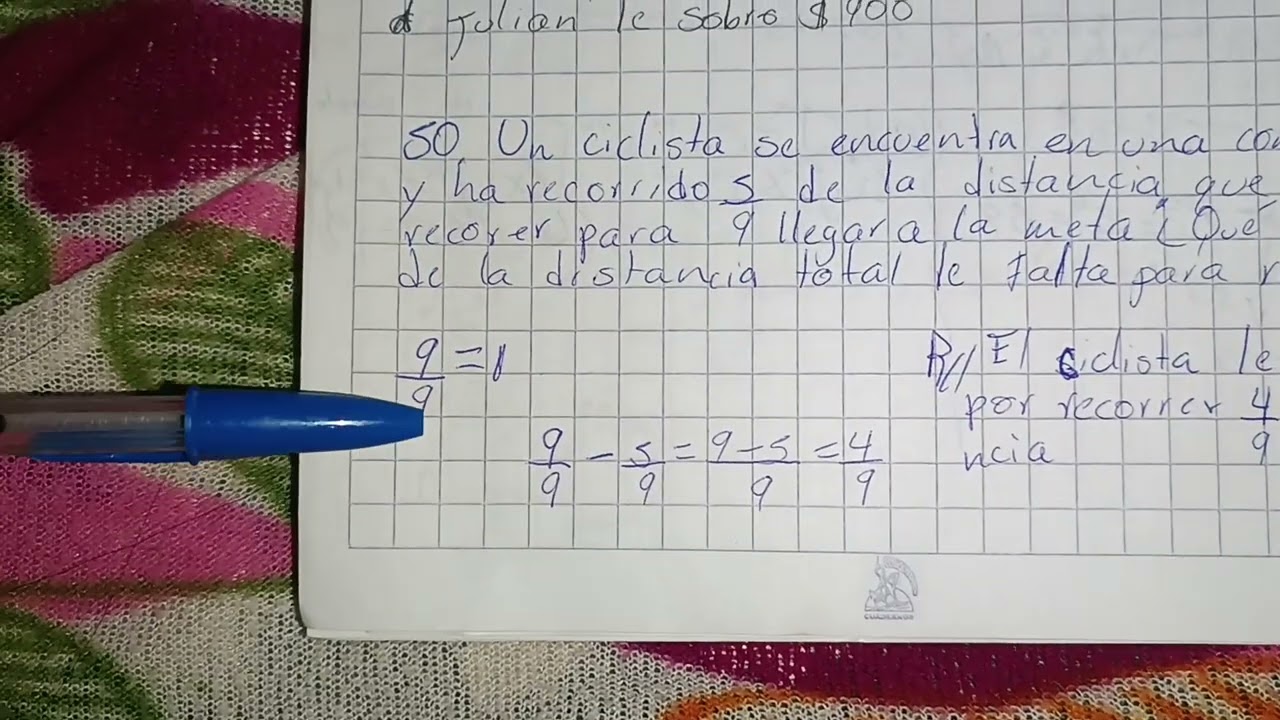 Julian le sobro $900
50 Un ciclista se encuentra en una
y ha recorrido 5/9 de la distancia que
recorer para llegar a la meta ¿Qué
de la distancia total le falta para
9/9 = 1
R// El ciclista le
por recorrer 4/9
9/9 - 5/9 = 9-5/9 = 4/9
ncia